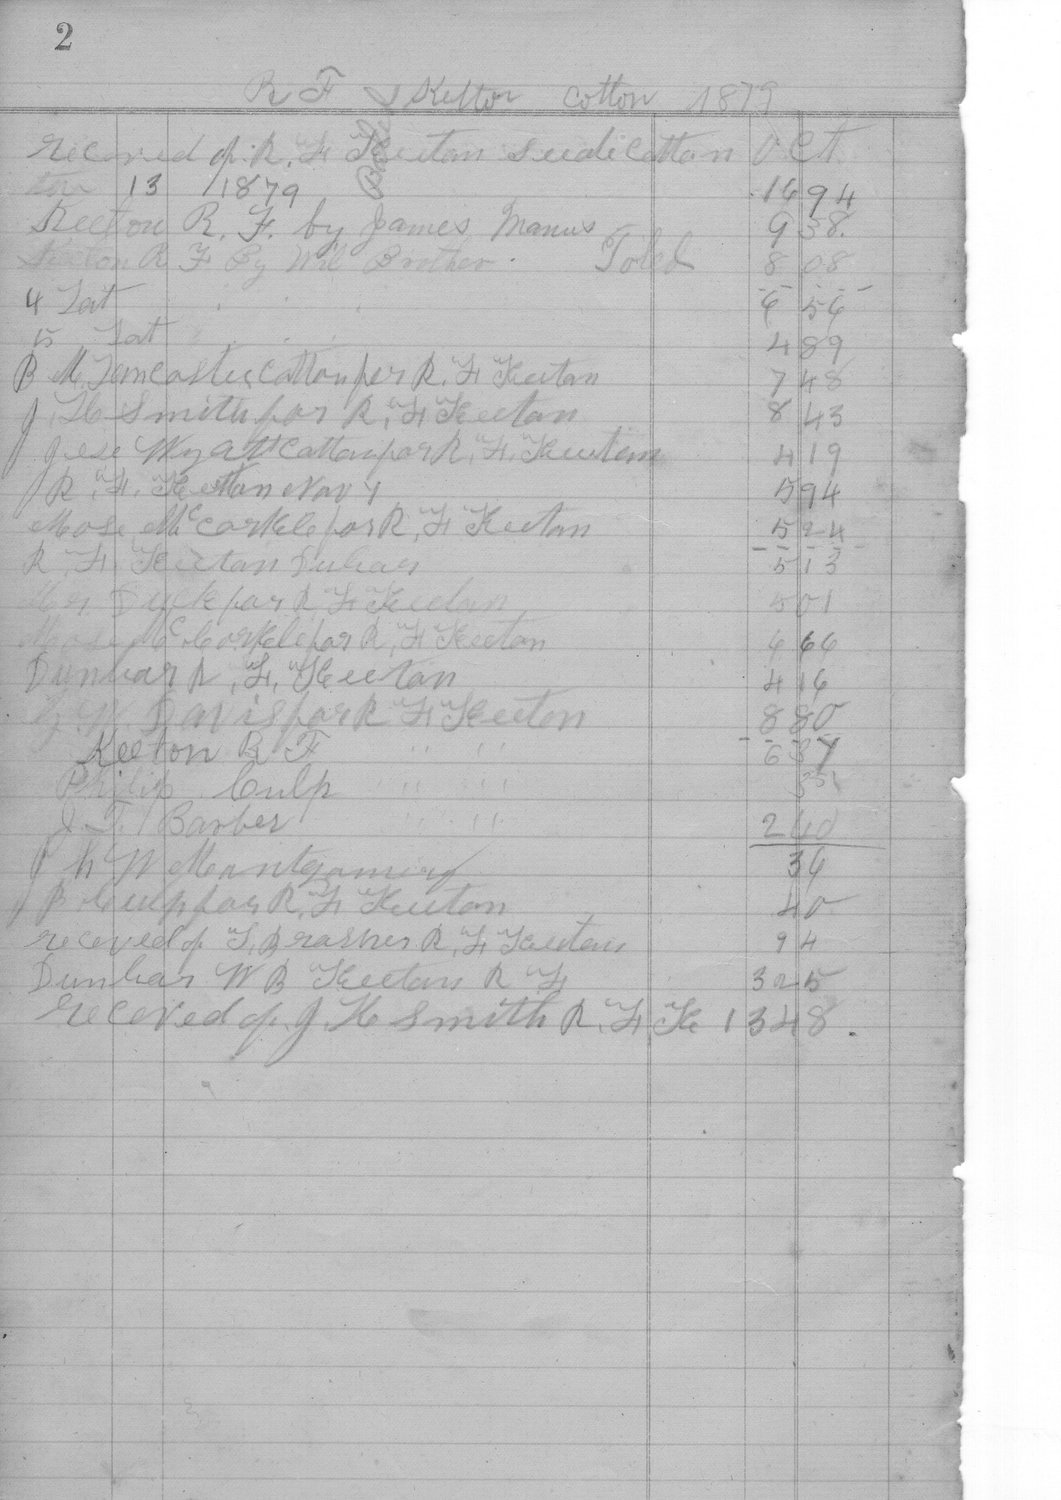 2
R F Keeton cotton 1879
receved of R. F. Keeton seedicotton Oct
13 1879 1694
Keeton R. F. by James Manus 938.
Keeton R F By Wil Brother. Toled 808
4 Lot 656
5 Lot 489
B M Lancaster Cotton per R. F. Keeton 748
J. H Smith por R. F. Keeton 843
Jese Wyatt Cotton por R. F. Keetan 419
R. F. Keetan Nov 1 594
Mose McCorkle por R. F Keetan 524
R. F. Keetan Dubar 513
Duck por R. F. Keetan 501
Mose McCorkle por R. F Keetan 666
Dunbar R. F. Keetan 416
W. Davis por R F Keeton 880
Keeton R F " " 637
Philip Culp " "
J. T. Barber " " 240
W Montgomery 36
B Culp por R. F Keetan 40
receved of Brasher R. F Keetan 94
Dunbar W B Keetan R F 325
receved of J. H Smith R. F. K 1348.